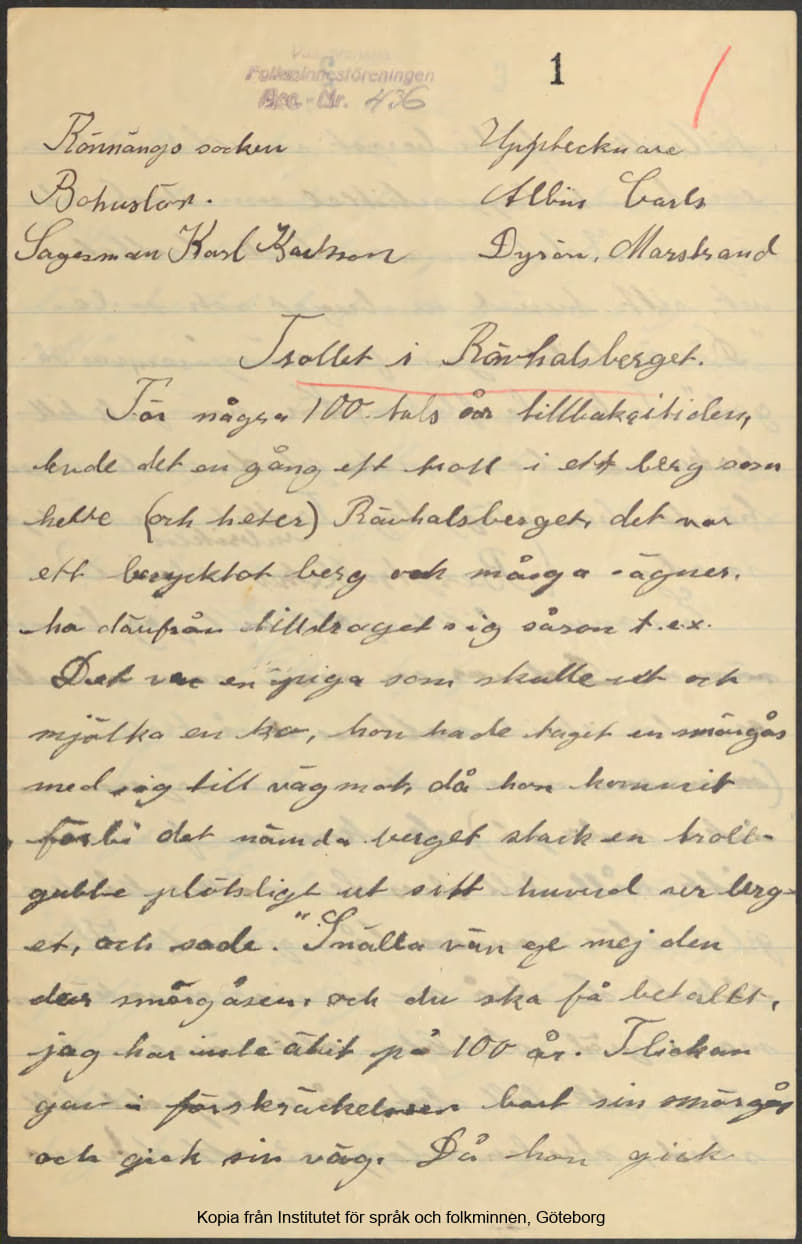 Folkminnesföreningen
1
Acc. Nr. 436
Rönnängs socken
Upptecknare
Bohuslän.
Albin Carls
Sagesman Karl Karlsson
Dyrön, Marstrand
Trollet i Rävhalsberget.
För några 100 tals år tillbaka i tiden,
bode det en gång ett troll i ett berg som
hette (och heter) Rävhalsberget, det var
ett beryktat berg och många sägner.
ha därifrån tilldraget sig såson t.ex.
Det var en piga som skulle ut och
mjölka en ko, hon hade taget en smörgås
med sig till vägmat, då hon kommit
förbi det nämda berget stack en troll-
gubbe plötsligt ut sitt huvud ur berg-
et, och sade. "Snälla vän ge mej den
där smörgåsen, och du ska få betallt,
jag har inte ätit på 100 år. Flickan
gav i förskräckelsen bort sin smörgås
och gick sin väg. Då hon gick
Kopia från Institutet för språk och folkminnen, Göteborg